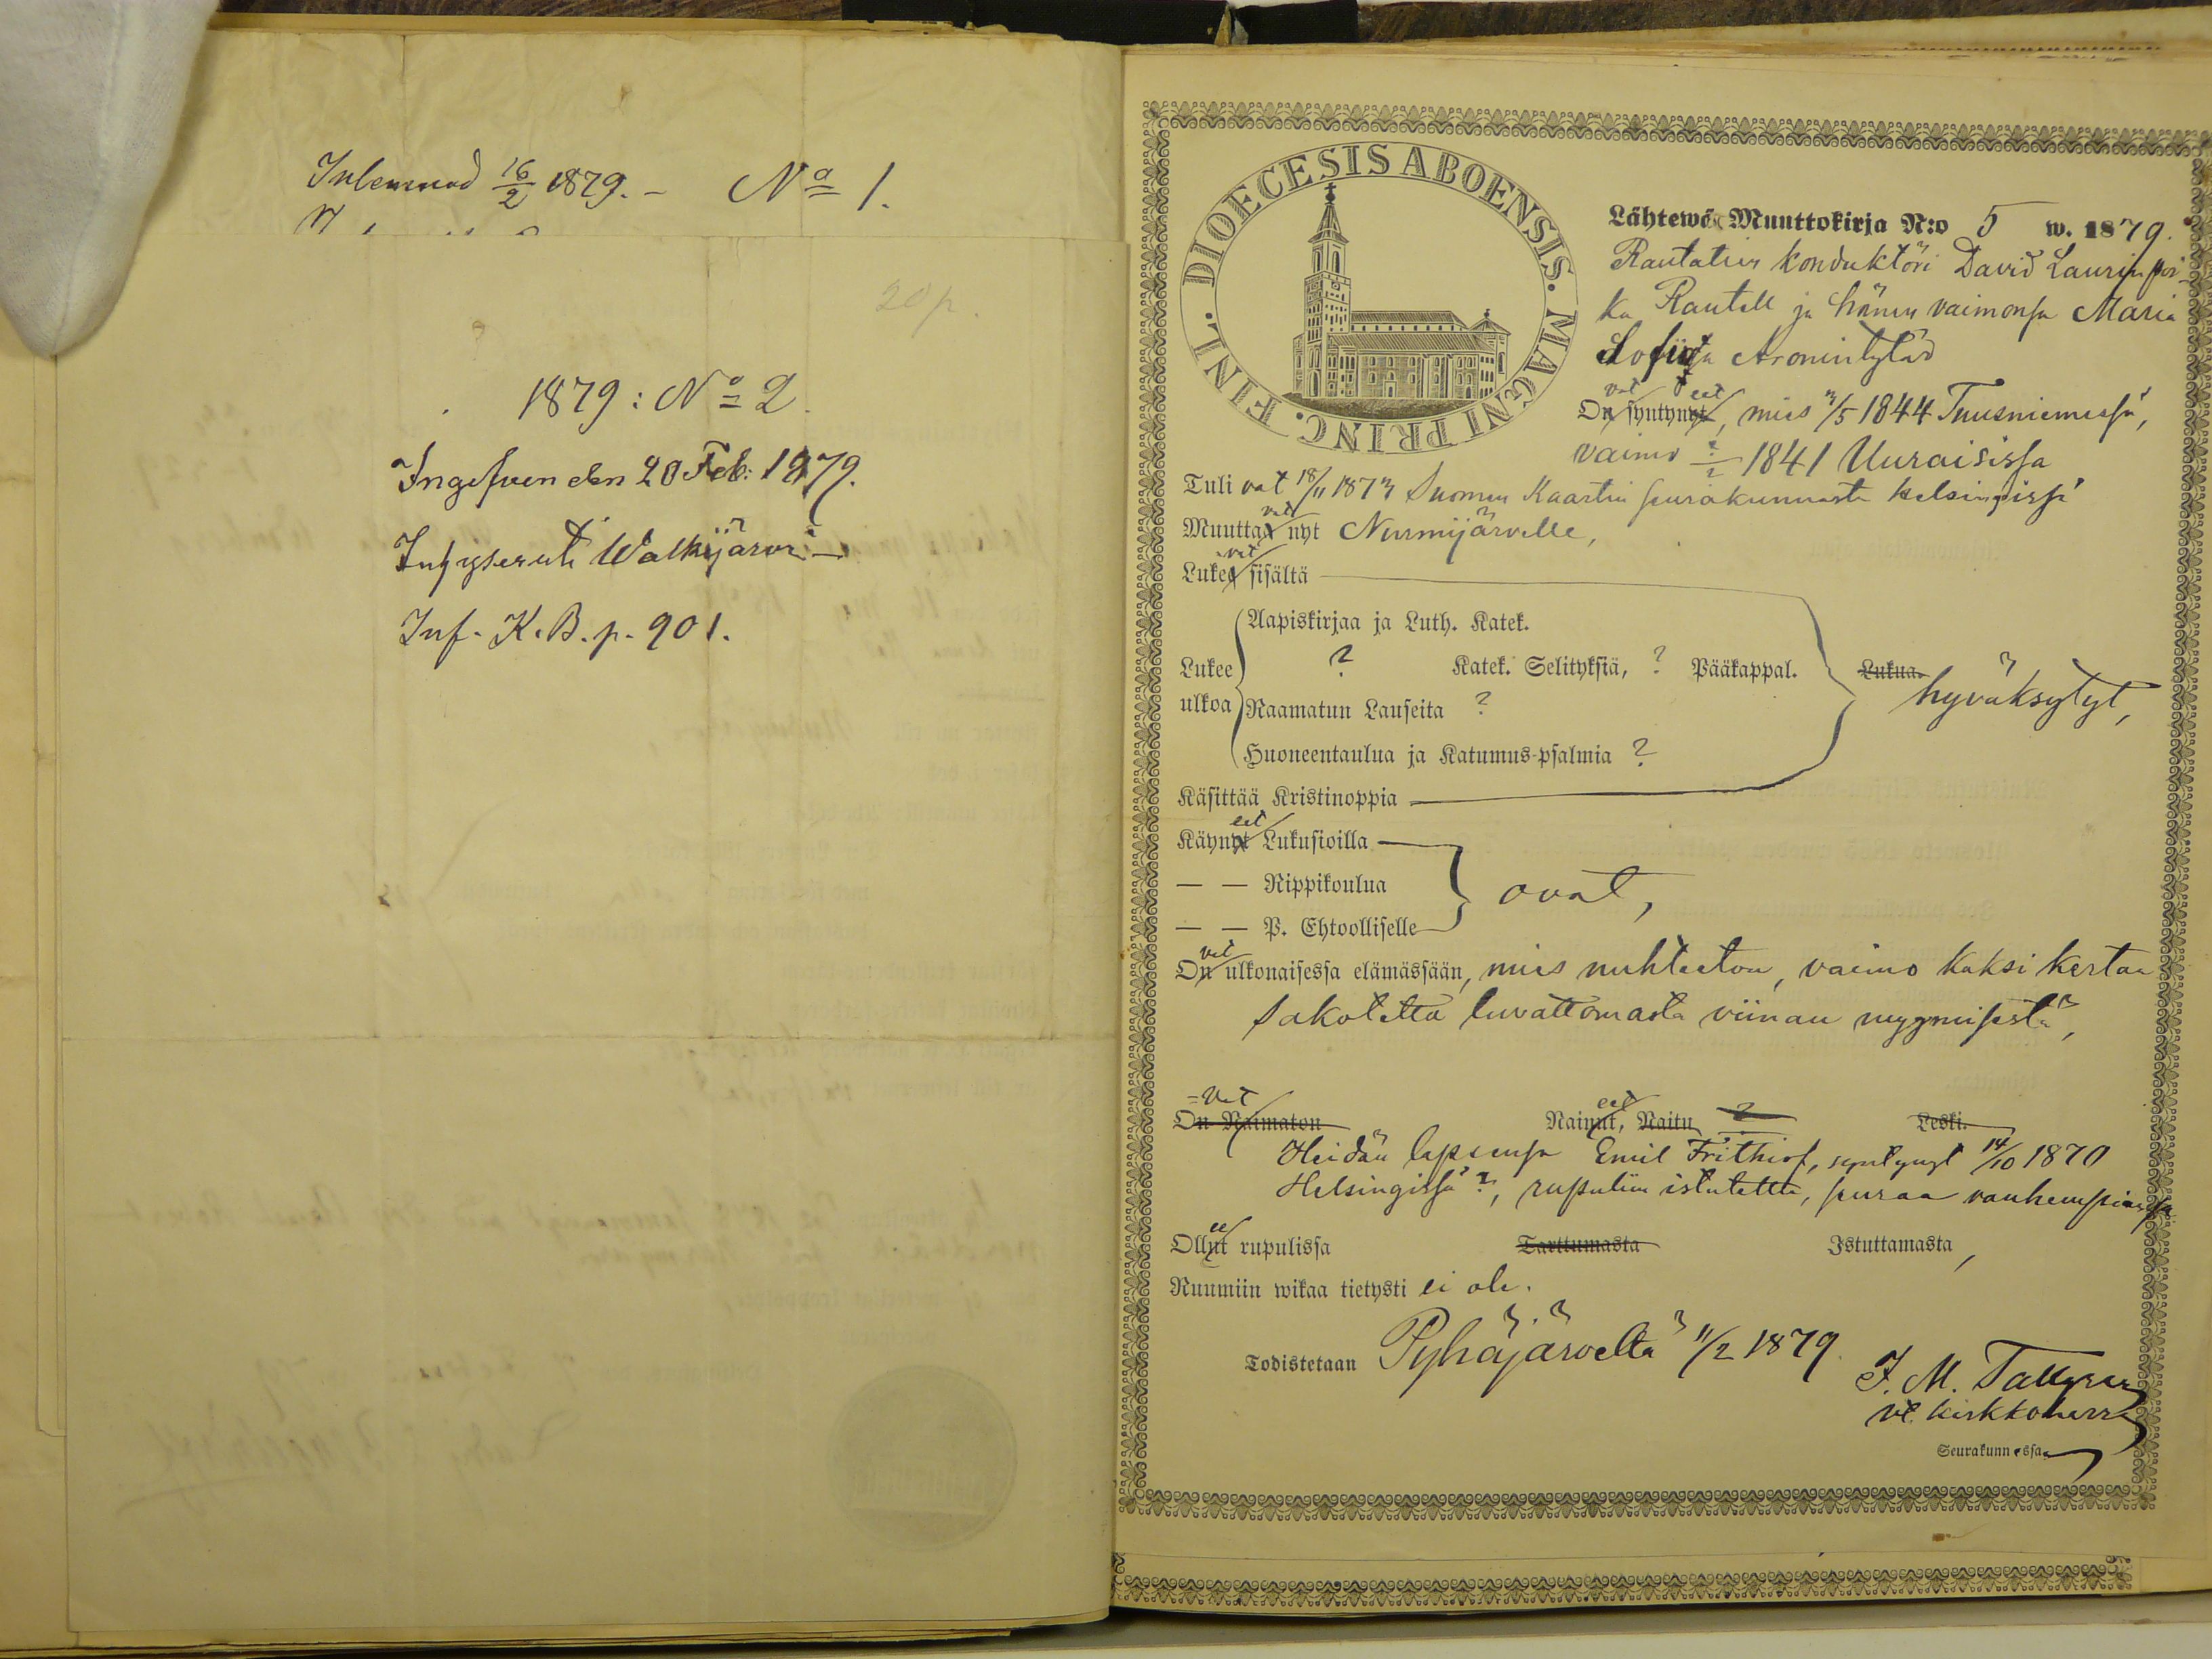 Inlemnad 16/2 1879. - No 1.
20 p.
1879 : No 2.
Ingifven den 20 Feb: 1879.
Walkjärvi -
Inf. K. B. p. 901.
FINL. DIOECESIS ABOENSIS. MAGNI PRINC.
Lähtewä Muuttokirja N:o 5 w. 1879.
Rautatien konduktöri David Laurin poi-
ka Rautell ja hänen vaimonsa Maria
Sofia Aronintytär
Ovat syntyneet, mies 3/5 1844 Tuusniemessä,
vaimo ?/2 1841 Uuraisissa
Tulivat 18/11 1873 Suomen Kaartin seurakunnasta Helsingissä
Muuttavat nyt Nurmijärvelle,
Lukevat sisältä
Aapiskirjaa ja Luth. Katek.
Lukee ? Katek. Selityksiä, ? Pääkappal. Lukua. hyväksytyt,
ulkoa Raamatun Lauseita ?
Huoneentaulua ja Katumus-psalmia ?
Käsittää Kristinoppia
Käyneet Lukusioilla
— — Rippikoulua ovat,
— — P. Ehtoolliselle
Ovat ulkonaisessa elämässään, mies nuhteeton, vaimo kaksi kertaa
sakotettu luvattomasta viinan myymisestä,
On Naimaton Naineet, Naitu ? Leski.
Heidän lapsensa Emil Frithiof, syntynyt 14/10 1870
Helsingissä ?, rupuliin istutettu, seuraa vanhempiansa
Olleet rupulissa Tarttumasta Istuttamasta,
Ruumiin wikaa tietysti ei ole.
Todistetaan Pyhäjärveltä 11/2 1879.
J. M. Tallgren
vt. kirkkoherra
Seurakunnassa